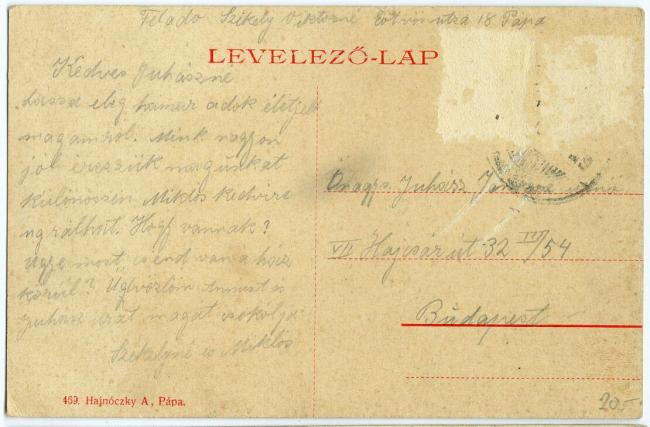 Feladó Székely Viktorné Eötvös utca 18 Pápa
LEVELEZŐ-LAP
Kedves Juhászné
Lássa elég hamar adok életjelt
magamról. Mink nagyon
jól érezzük magunkat
különössen Miklós kedvire
ugrálhat. Hogy vannak?
Ugye most csend van a ház
körül? Üdvözlöm Annust és
Juhász urat magát csókolja
Székelyné és Miklós
Önagys. Juhász
VII Hajcsár út 32 III/54
Budapest
469. Hajnóczky A, Pápa.
20.-